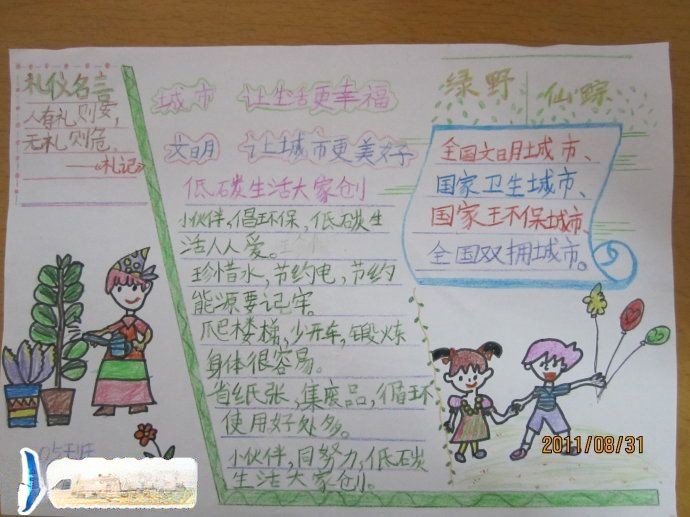 礼仪名言
人有礼则安,
无礼则危。
——《礼记》
城市 让生活更幸福
文明 让城市更美好
低碳生活大家创
小伙伴,倡环保,低碳生
活人人爱。
珍惜水,节约电,节约
能源要记牢。
爬楼梯,少开车,锻炼
身体很容易。
省纸张,集废品,循环
使用好处多。
小伙伴,同努力,低碳
生活大家创。
绿野
仙踪
全国文明城市、
国家卫生城市、
国家环保城市、
全国双拥城市。
2011/08/31